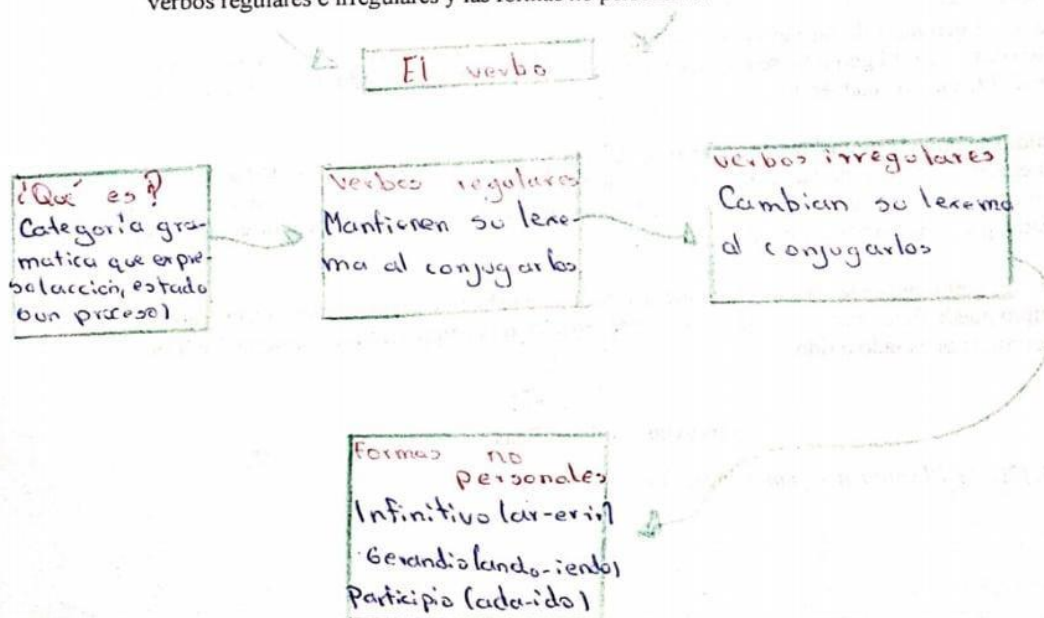 verbos regulares e irregulares y las formas no
El verbo
¿Qué es?
Categoría gra-
matica que expre-
sa (acción, estado
o un proceso)
Verbos regulares
Mantienen su lexe-
ma al conjugarlos
verbos irregulares
Cambian su lexema
al conjugarlos
Formas no
personales
Infinitivo (ar-er-ir)
Gerundio (ando-iendo)
Participio (ado-ido)